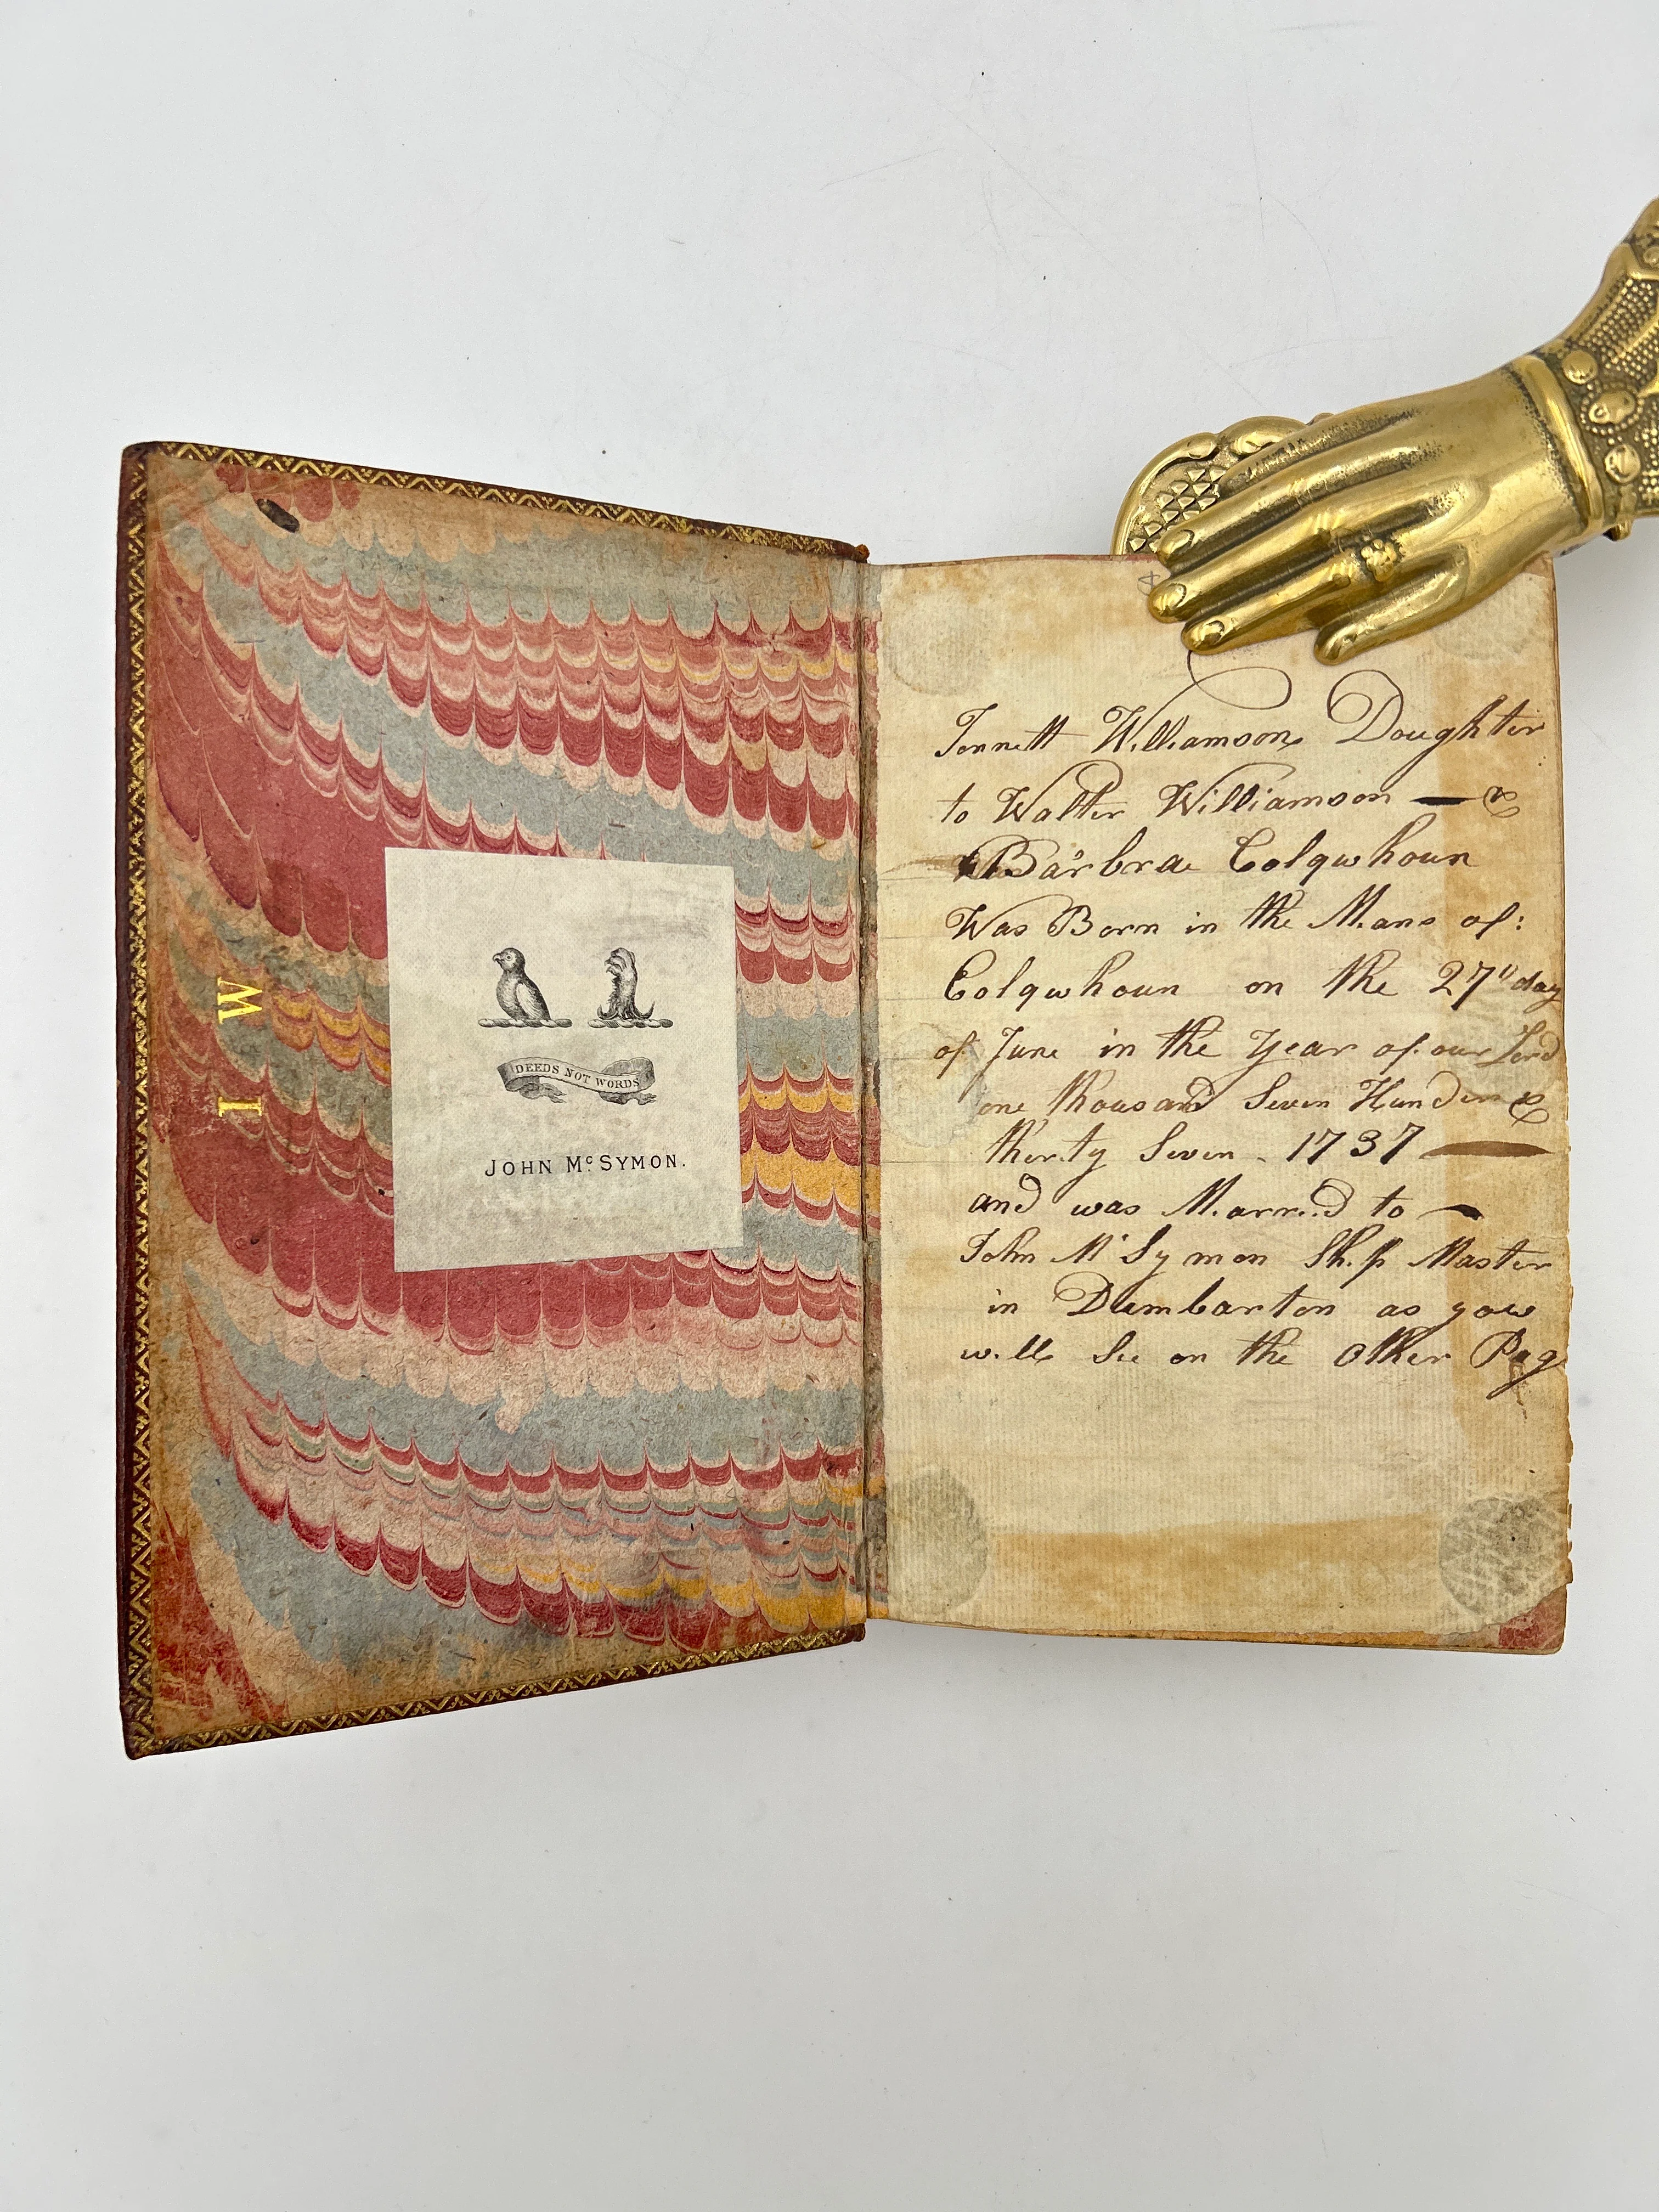 I W
DEEDS NOT WORDS
JOHN McSYMON.
Jennett Williamson Doughter
to Walter Williamson — &
Barbra Colqwhoun
Was Born in the Mans of:
Colqwhoun on the 27" day
of June in the Year of our Lord
one thousand Seven Hunder &
therty Seven - 1737 —
and was Married to —
John Mc Symon Ship Master
in Dumbarton as yow
will See on the Other Pag